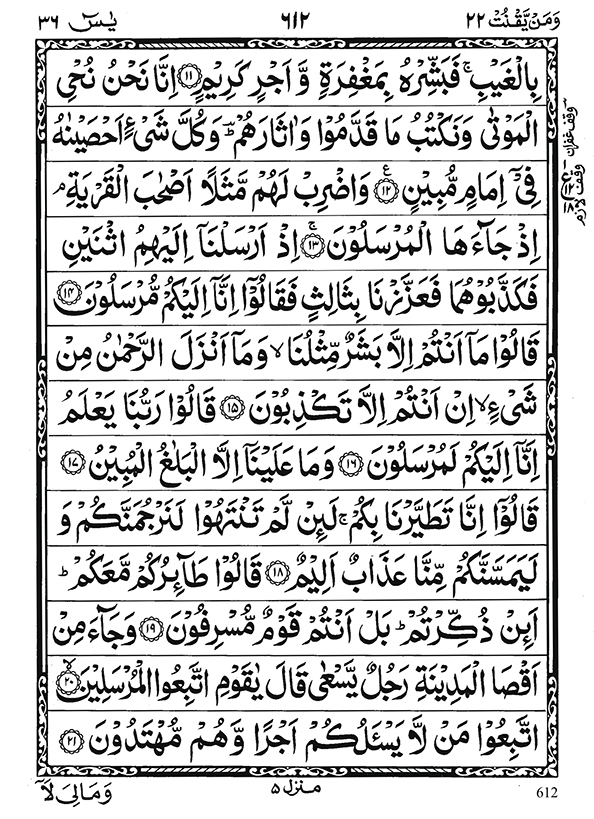 وَمَنْ يَّقْنُتْ ٢٢ ٦١٢ يٰسٓ ٣٦
بِالْغَيْبِ ۚ فَبَشِّرْهُ بِمَغْفِرَةٍ وَّ اَجْرٍ كَرِيْمٍ ﴿١١﴾ اِنَّا نَحْنُ نُحْيِ
الْمَوْتٰى وَنَكْتُبُ مَا قَدَّمُوْا وَاٰثَارَهُمْ ؕ وَكُلَّ شَيْءٍ اَحْصَيْنٰهُ
فِيْۤ اِمَامٍ مُّبِيْنٍ ﴿١٢﴾ ع وَاضْرِبْ لَهُمْ مَّثَلًا اَصْحٰبَ الْقَرْيَةِ ۘ
وقف غفران
وقف لازم
اِذْ جَآءَهَا الْمُرْسَلُوْنَ ﴿١٣﴾ ۚ اِذْ اَرْسَلْنَاۤ اِلَيْهِمُ اثْنَيْنِ
فَكَذَّبُوْهُمَا فَعَزَّزْنَا بِثَالِثٍ فَقَالُوْۤا اِنَّاۤ اِلَيْكُمْ مُّرْسَلُوْنَ ﴿١٤﴾
قَالُوْا مَاۤ اَنْتُمْ اِلَّا بَشَرٌ مِّثْلُنَا ۙ وَمَاۤ اَنْزَلَ الرَّحْمٰنُ مِنْ
شَيْءٍ ۙ اِنْ اَنْتُمْ اِلَّا تَكْذِبُوْنَ ﴿١٥﴾ قَالُوْا رَبُّنَا يَعْلَمُ
اِنَّاۤ اِلَيْكُمْ لَمُرْسَلُوْنَ ﴿١٦﴾ وَمَا عَلَيْنَاۤ اِلَّا الْبَلٰغُ الْمُبِيْنُ ﴿١٧﴾
قَالُوْۤا اِنَّا تَطَيَّرْنَا بِكُمْ ۚ لَئِنْ لَّمْ تَنْتَهُوْا لَنَرْجُمَنَّكُمْ وَ
لَيَمَسَّنَّكُمْ مِّنَّا عَذَابٌ اَلِيْمٌ ﴿١٨﴾ قَالُوْا طَآئِرُكُمْ مَّعَكُمْ ؕ
اَئِنْ ذُكِّرْتُمْ ؕ بَلْ اَنْتُمْ قَوْمٌ مُّسْرِفُوْنَ ﴿١٩﴾ وَجَآءَ مِنْ
اَقْصَا الْمَدِيْنَةِ رَجُلٌ يَّسْعٰى قَالَ يٰقَوْمِ اتَّبِعُوا الْمُرْسَلِيْنَ ﴿٢٠﴾ ۙ
اتَّبِعُوْا مَنْ لَّا يَسْـَٔلُكُمْ اَجْرًا وَّهُمْ مُّهْتَدُوْنَ ﴿٢١﴾
612 منزل ٥ وَمَالِيَ لَاۤ